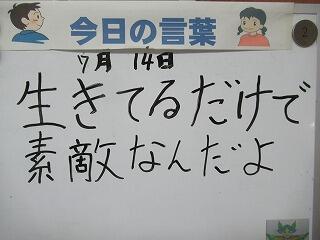 今日の言葉
2
7月 14日
生きてるだけで
素敵なんだよ